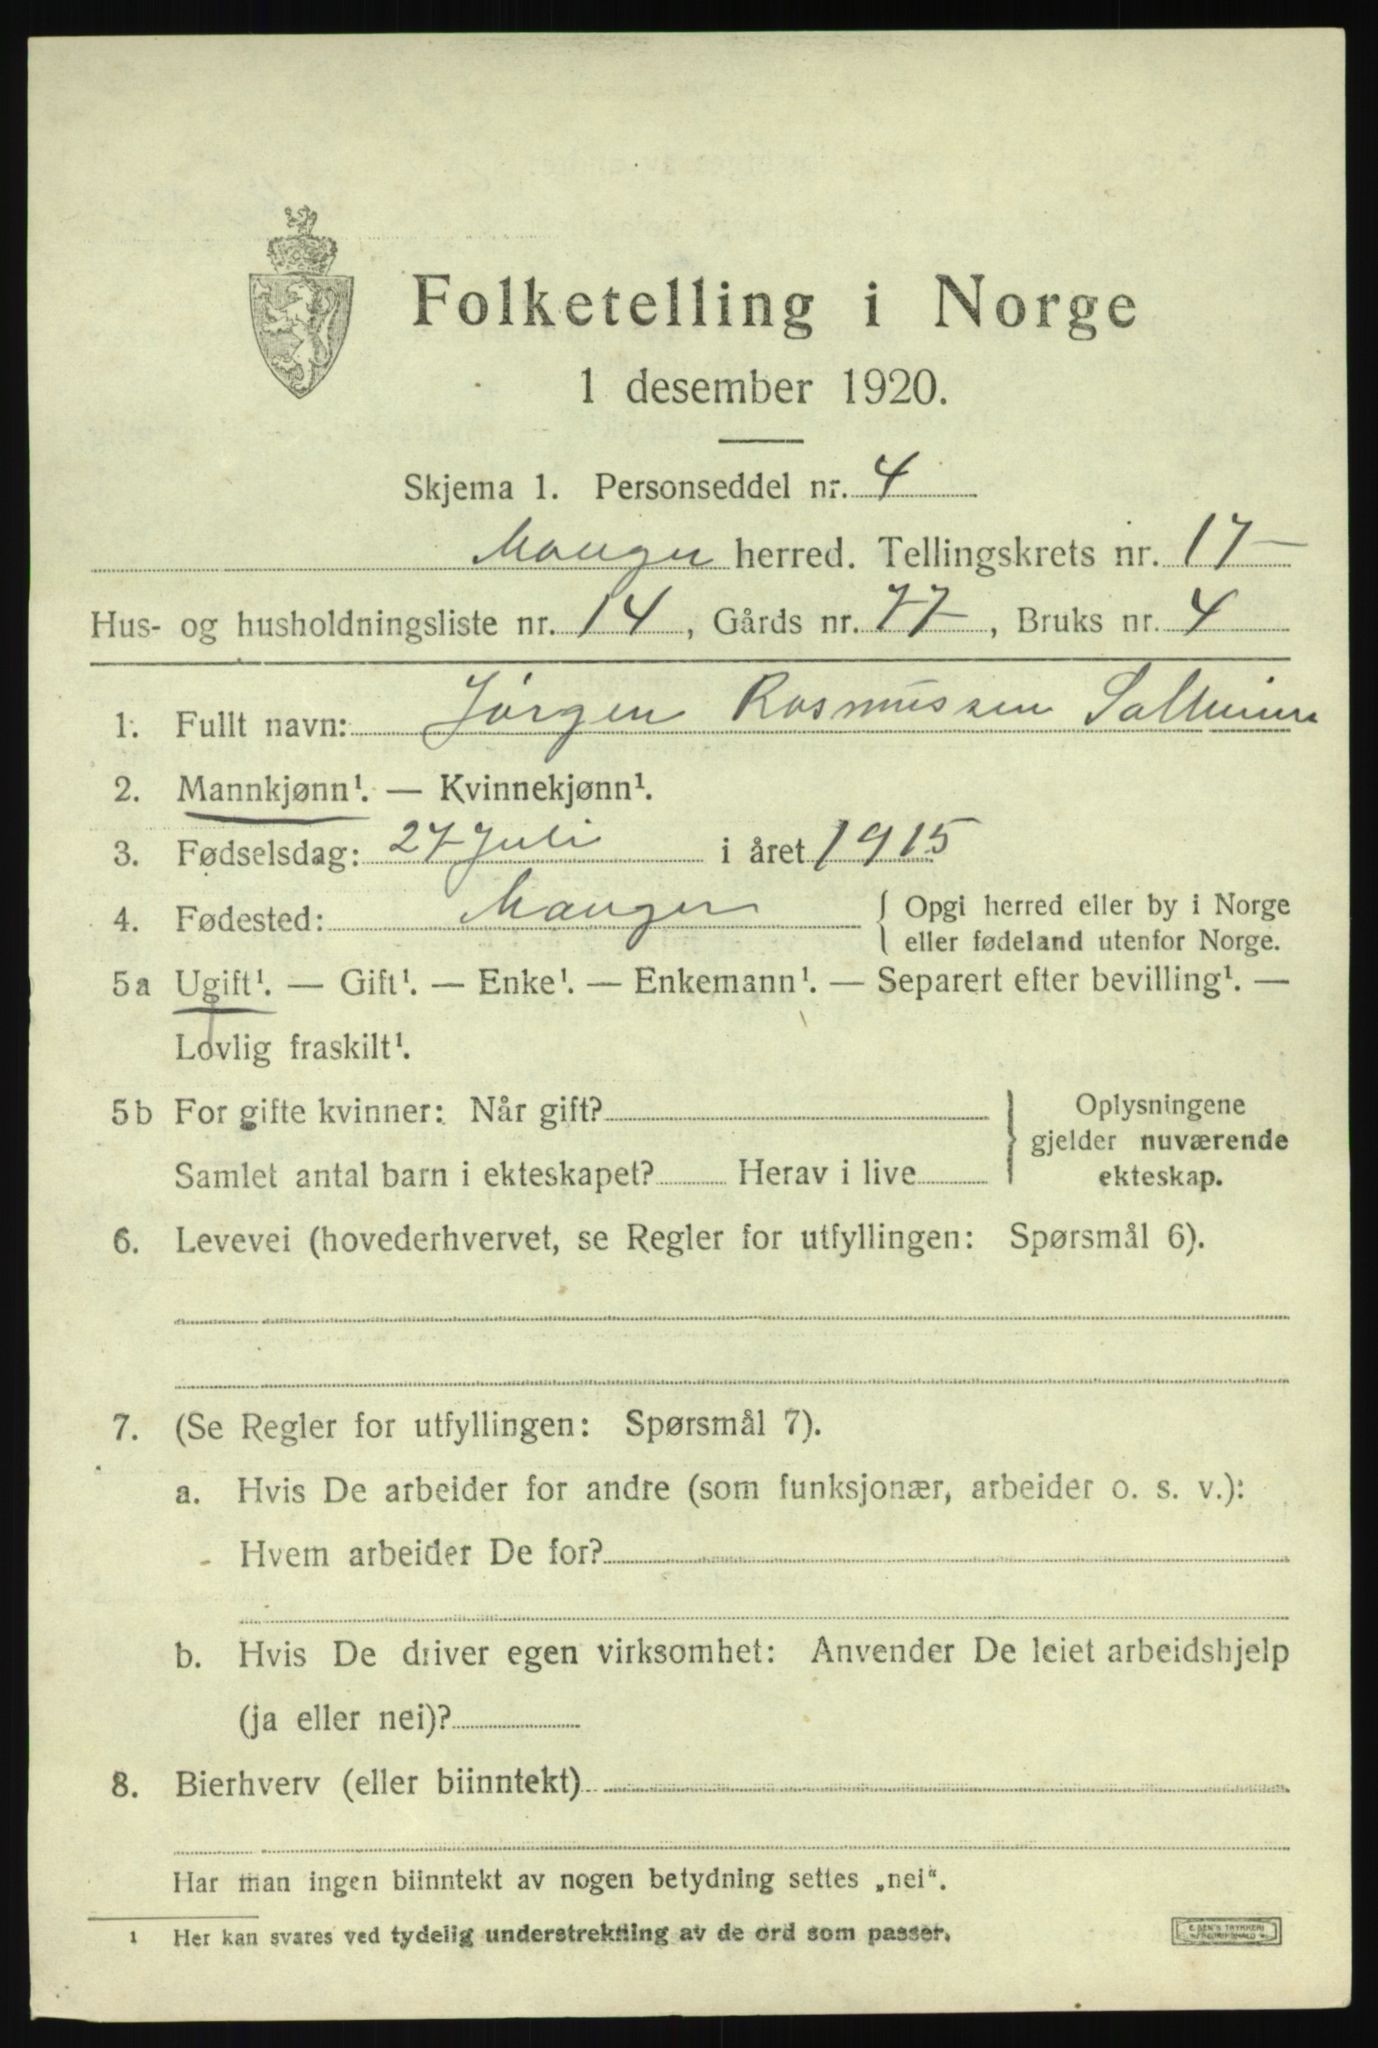 Folketelling i Norge
1 desember 1920.
Skjema 1. Personseddel nr. 4
Manger herred. Tellingskrets nr. 17
Hus- og husholdningsliste nr. 14, Gårds nr. 77, Bruks nr. 4
1. Fullt navn: Jørgen Rasmussen
2. Mannkjønn¹. — Kvinnekjønn¹.
3. Fødselsdag: 27 Juli i året 1915
4. Fødested: Manger { Opgi herred eller by i Norge
eller fødeland utenfor Norge.
5a Ugift¹. — Gift¹. — Enke¹. — Enkemann¹. — Separert efter bevilling¹. —
Lovlig fraskilt¹.
5b For gifte kvinner: Når gift?
Samlet antal barn i ekteskapet? Herav i live
} Oplysningene
gjelder nuværende
ekteskap.
6. Levevei (hovederhvervet, se Regler for utfyllingen: Spørsmål 6).
7. (Se Regler for utfyllingen: Spørsmål 7).
a. Hvis De arbeider for andre (som funksjonær, arbeider o. s. v.):
Hvem arbeider De for?
b. Hvis De driver egen virksomhet: Anvender De leiet arbeidshjelp
(ja eller nei)?
8. Bierhverv (eller biinntekt)
Har man ingen biinntekt av nogen betydning settes „nei“.
1 Her kan svares ved tydelig understrekning av de ord som passer.